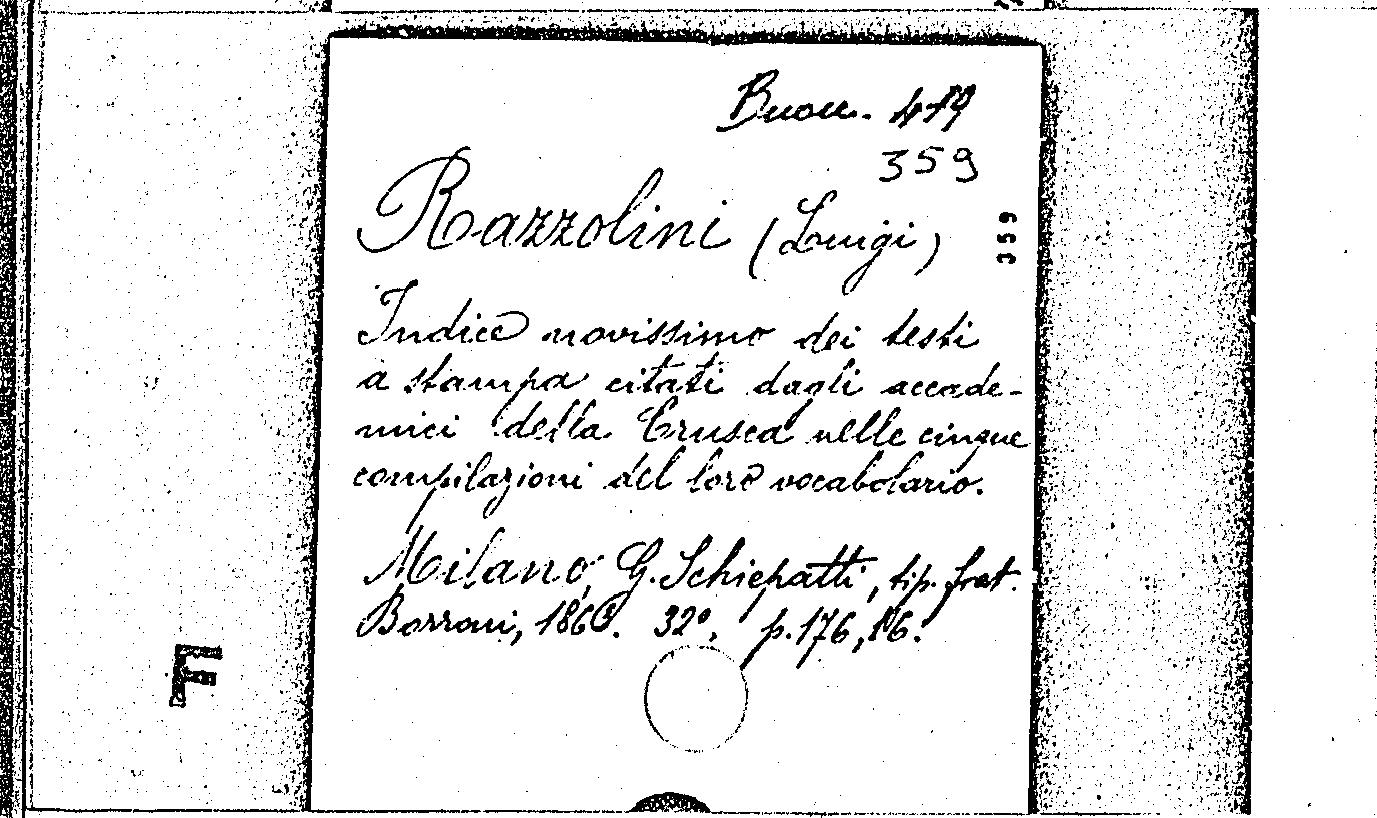 Buocc. 419
359
Razzolini (Luigi)
359
Indice novissimo dei testi
a stampa citati dagli accade-
mici della Crusca nelle cinque
compilazioni del loro vocabolario.
Milano, G. Schiepatti, tip. frat.
Borroni, 1863. 32º. p. 176, 16.
F